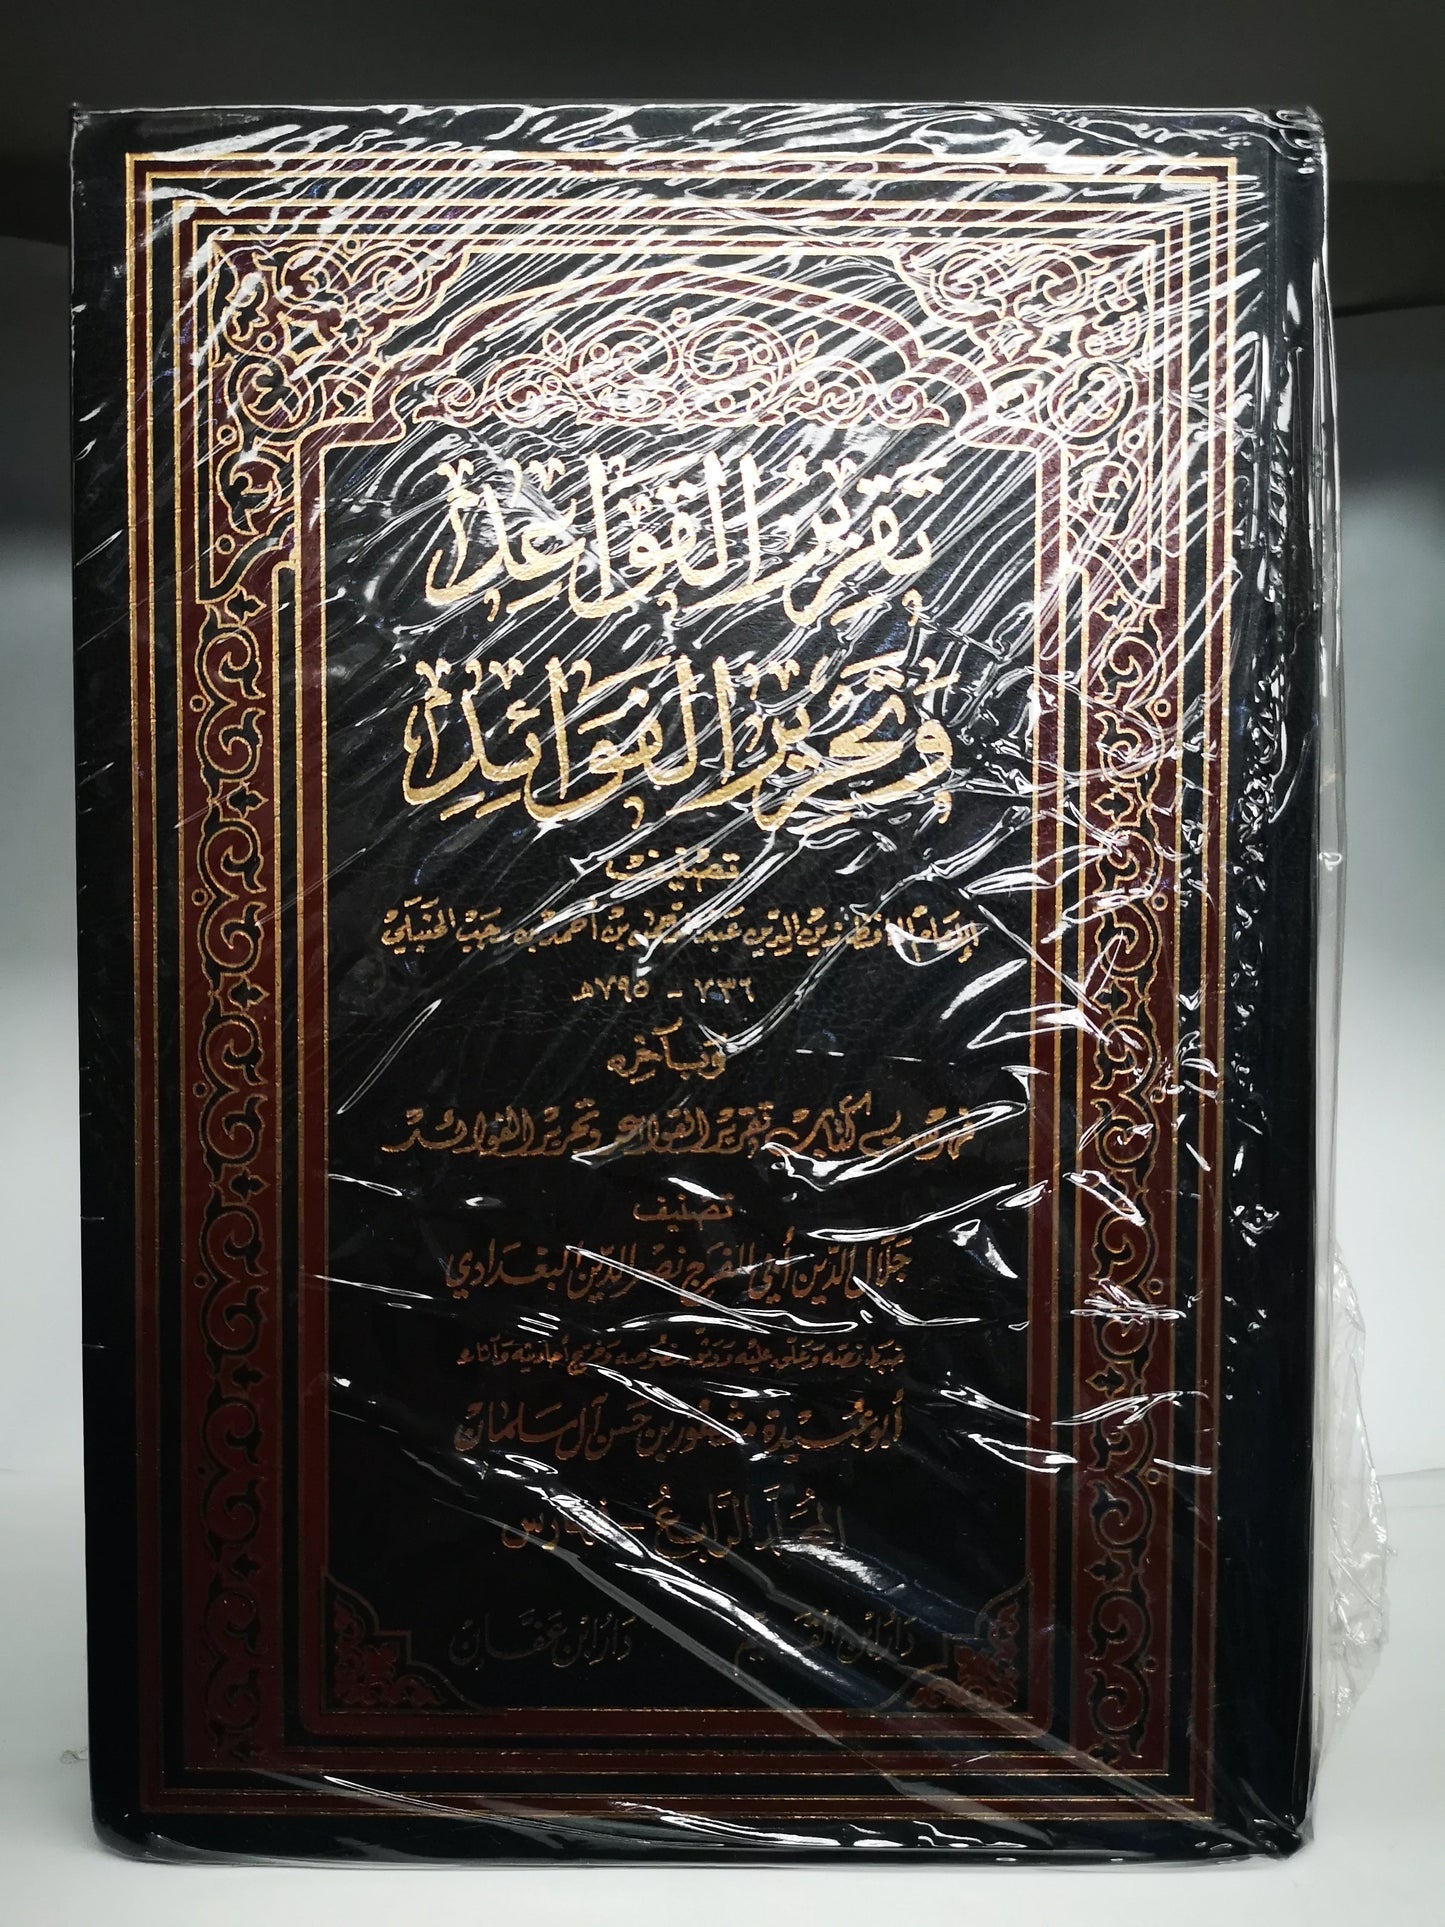 تقريرُ القوَاعِد
وَتحريرُ الفوَائِد
تصنيف
الإمام الحافظ زين الدين عَبد الرحمن بن أحمد بن رجب الحنبلي
٧٣٦ - ٧٩٥هـ
وَبآخِرِه
فهرست كتاب تقرير القواعد وتحرير الفوائد
تصنيف
جَلال الدّين أبي الفرج نصر الدين البغدادي
ضبط نصّه وعلق عليه ووثق نصوصه وخرج أحاديثه وآثاره
أبو عبيدة مشهور بن حَسن آل سَلمان
المجلّد الرّابعُ - فهارس
دَار ابن القيم دَار ابن عَفّان